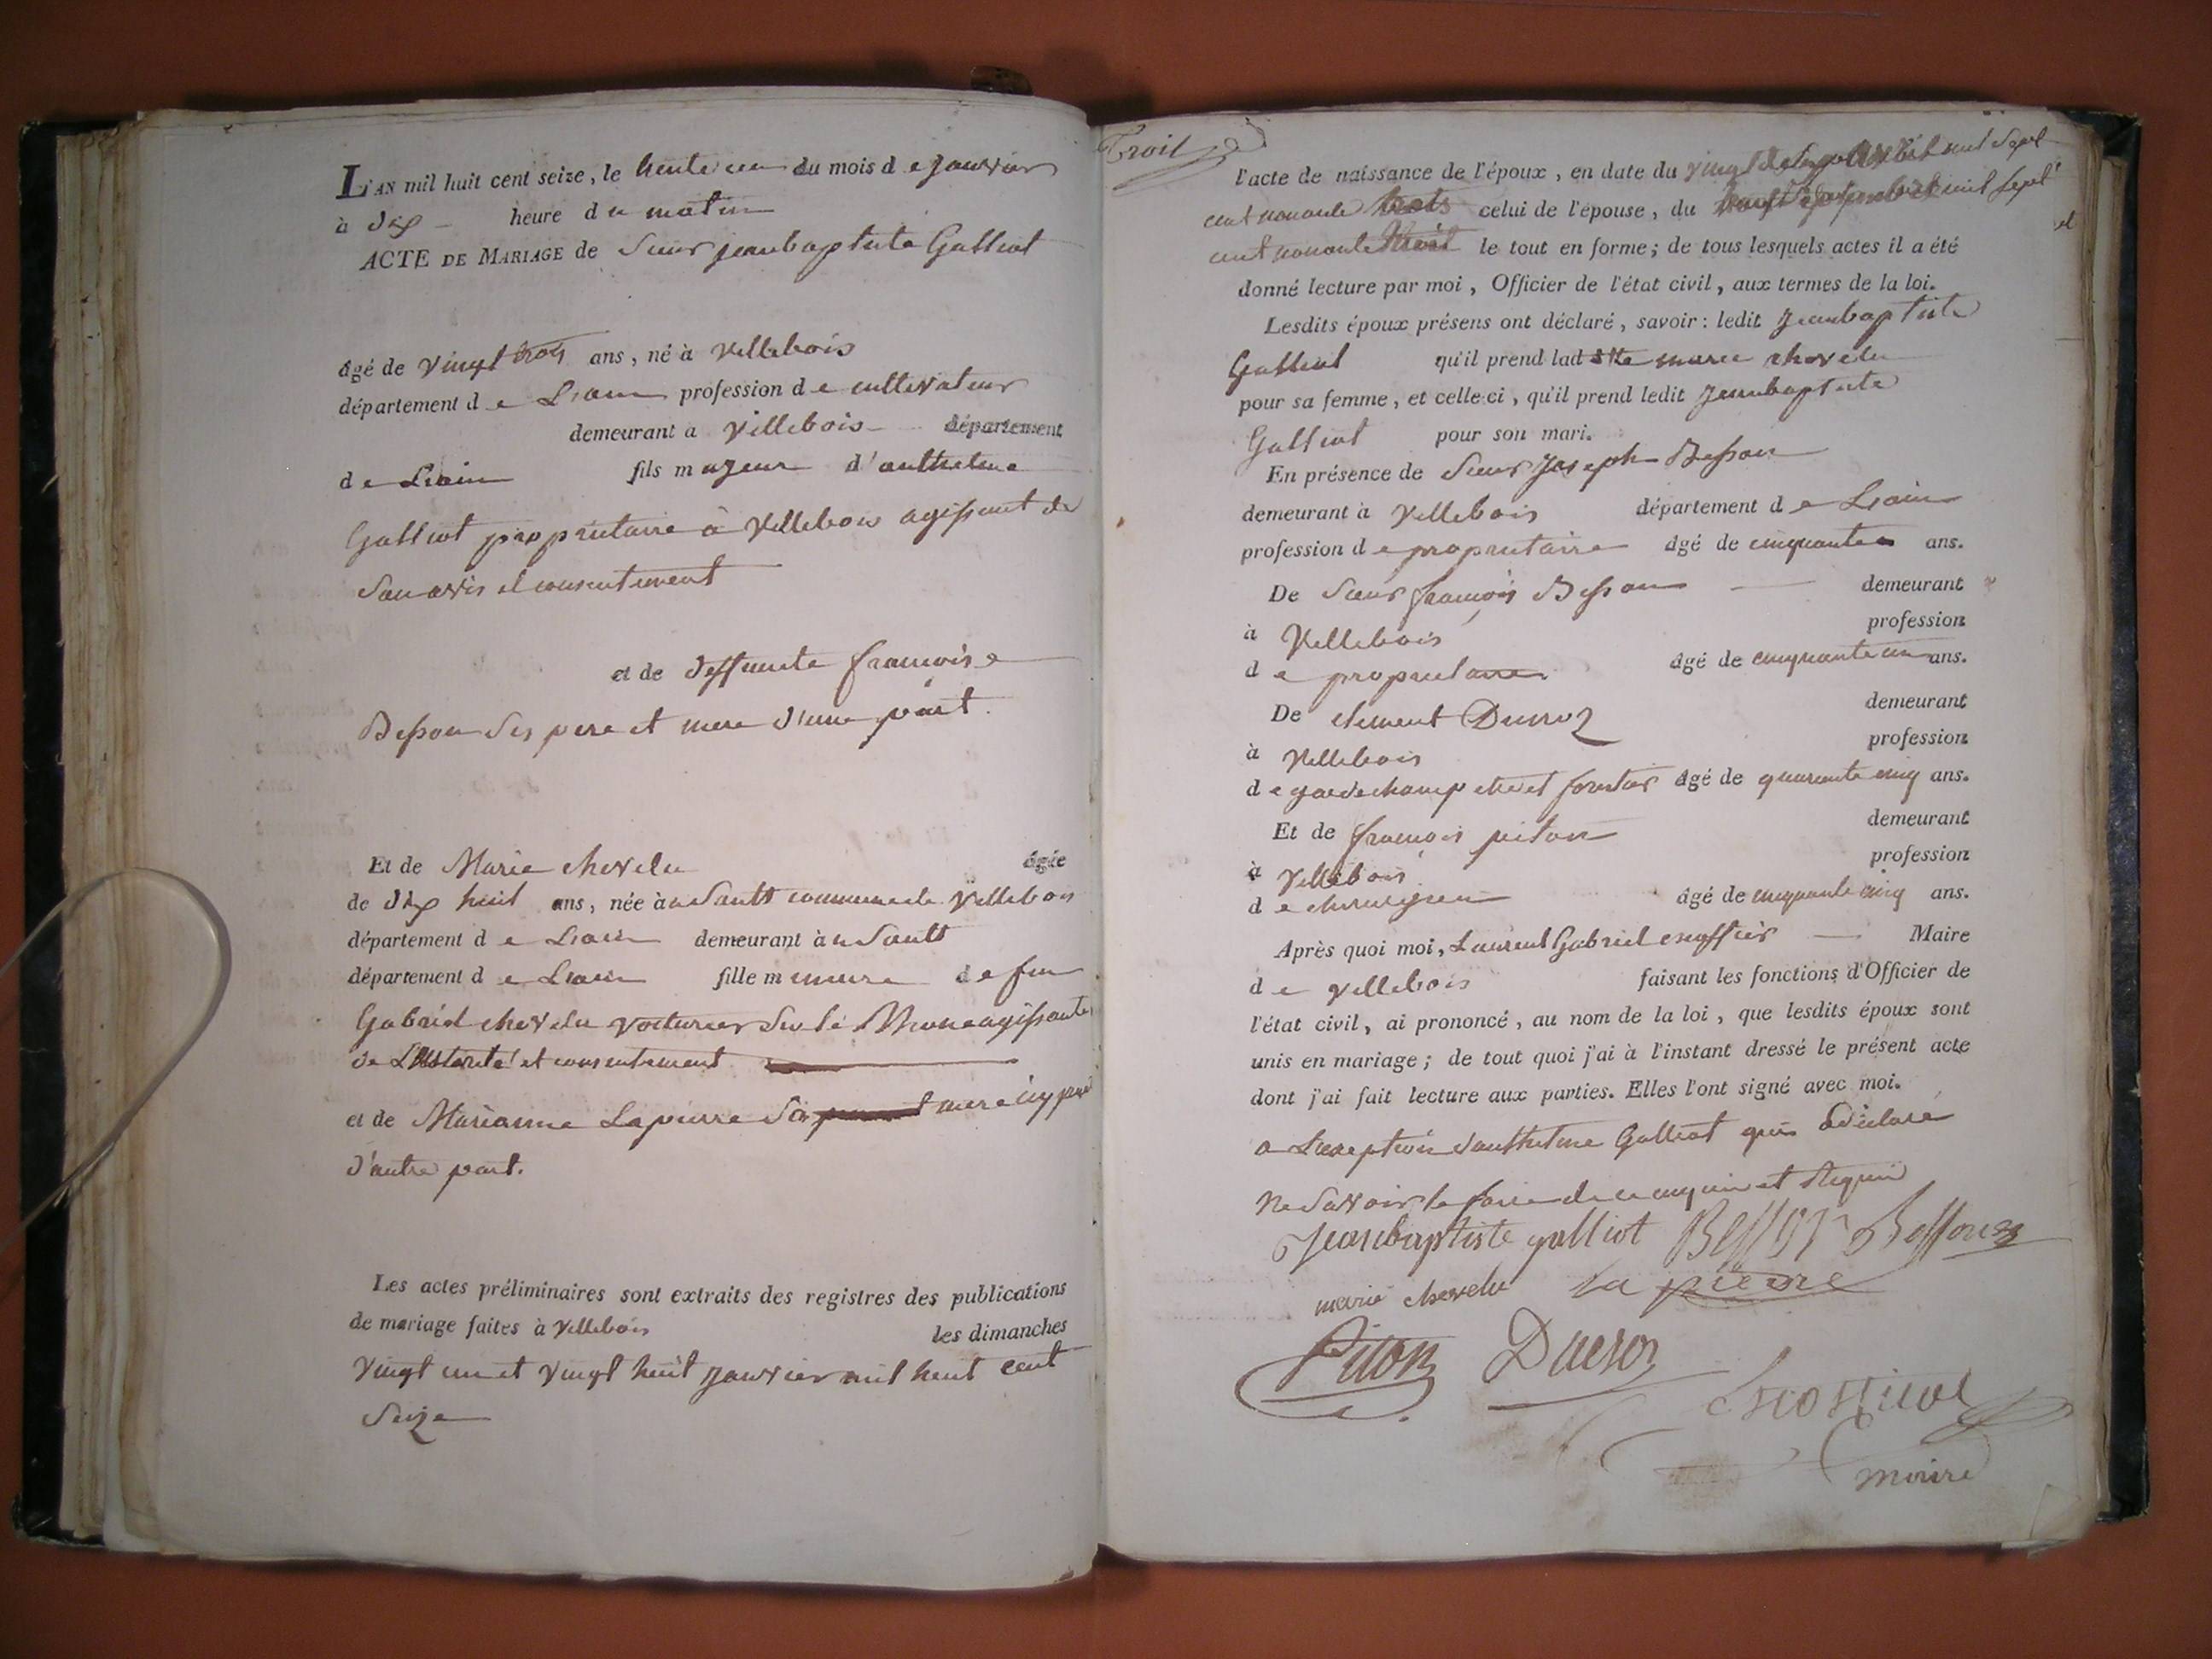 L'AN mil huit cent seize, le trente un du mois de janvier
à dix heure du matin
ACTE DE MARIAGE de Sieur jeanbaptiste Galliot
âgé de vingt trois ans, né à villebois
département de Lain profession de cultivateur
demeurant a villebois département
de Lain fils majeur d'anthelme
Galliot propriétaire à villebois agissant de
Son avis et consentement
et de deffunte françoise
Besson Ses pere et mere d'une part.
Et de Marie chevelu âgée
de dix huit ans, née à Sault commune de villebois
département de Lain demeurant à Sault
département de Lain fille mineure de feu
Gabriel chevelu voiturier Sur le Rhone agissante
de L'autorité et consentement
et de Marianne Lapierre Sa mere icy
d'autre part.
Les actes préliminaires sont extraits des registres des publications
de mariage faites à villebois les dimanches
vingt un et vingt huit janvier mil huit cent
Seize
Trois
l'acte de naissance de l'époux, en date du vingt mil sept
cent nonante trois celui de l'épouse, du mil sept
cent nonante le tout en forme; de tous lesquels actes il a été
donné lecture par moi, Officier de l'état civil, aux termes de la loi.
Lesdits époux présens ont déclaré, savoir: ledit jeanbaptiste
Galliot qu'il prend lad marie chevelu
pour sa femme, et celle ci, qu'il prend ledit jeanbaptiste
Galliot pour son mari.
En présence de Sieur joseph Besson
demeurant à villebois département de Lain
profession de proprietaire âgé de cinquante ans.
De Sieur françois Besson demeurant
à villebois profession
de proprietaire âgé de cinquante un ans.
De clement Ducroz demeurant
à villebois profession
de garde champetre et forestier âgé de quarante cinq ans.
Et de françois piton demeurant
à villebois profession
de chirurgien âgé de cinquante cinq ans.
Après quoi moi, Laurent Gabriel escoffier Maire
de villebois faisant les fonctions d'Officier de
l'état civil, ai prononcé, au nom de la loi, que lesdits époux sont
unis en mariage; de tout quoi j'ai à l'instant dressé le présent acte
dont j'ai fait lecture aux parties. Elles l'ont signé avec moi.
a L'exception d'anthelme Galliot qui a déclaré
ne Savoir le faire de ce enquis et Requis
jeanbaptiste galliot Besson Besson
marie chevelu la pierre
Piton Ducroz
Escoffier
maire